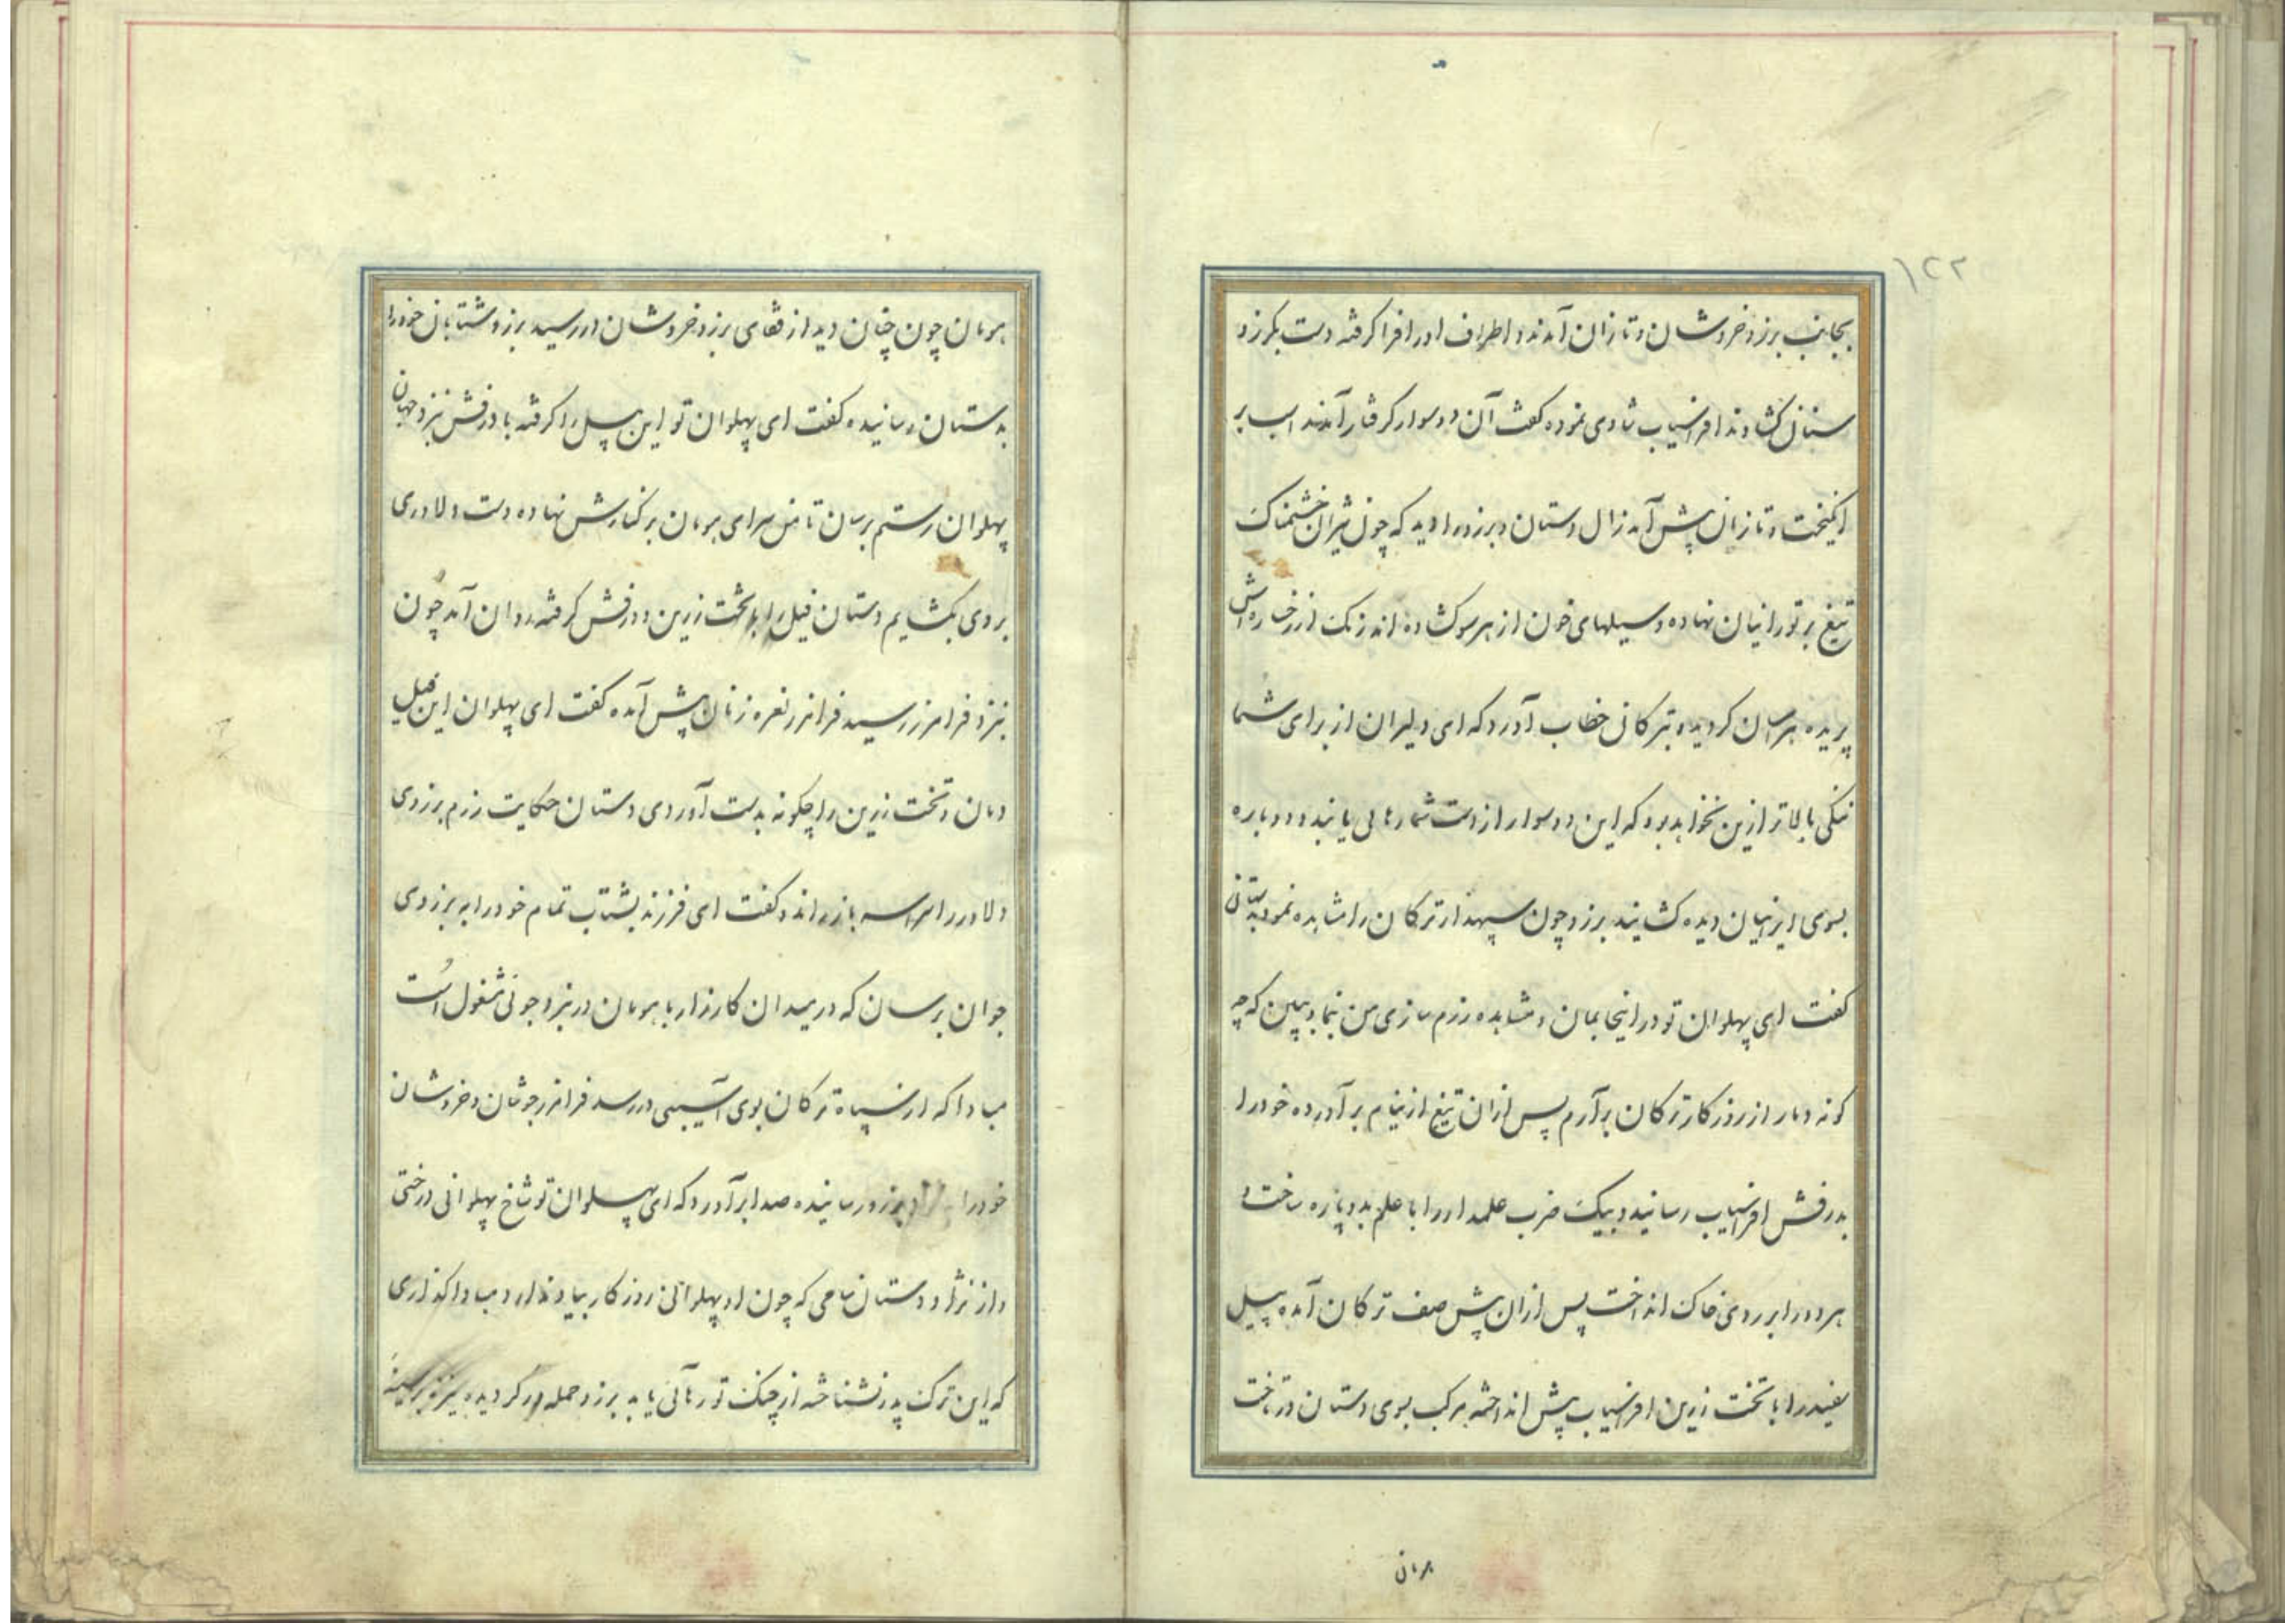 ۱۲۲
بجانب برزو خروشان و تازان آمدند و اطراف او را فرا گرفته دست بگرز و
سنان گشادند افراسیاب شادی نموده گفت آن دو سوار گرفتار آمدند اسب بر
انگیخت و تازان پیش آمد زال دستان و برزو را دید که چون شیران خشمناک
تیغ بر تورانیان نهاده و سیلهای خون از هر سو گشاده اند رنگ از رخساره اش
پریده هراسان گردید و بترکان خطاب آورد که ای دلیران از برای شما
ننگی بالاتر ازین نخواهد بود که این دو سوار از دست شما رهائی یابند و دوباره
بسوی ایرانیان دیده گشایند برزو چون سپهدار ترکان را مشاهده نمود بدستان
گفت ای پهلوان تو در اینجا بمان و مشاهده رزم سازی من بنما و ببین که چه
گونه دمار از روزگار ترکان برآرم پس ازان تیغ از نیام برآورده خود را
بدرفش افراسیاب رسانید و بیک ضرب علمدار را با علم بدوپاره ساخت و
هر دو را بر روی خاک انداخت پس ازان پیش صف ترکان آمده پیل
سفید را با تخت زرین افراسیاب پیش انداخته مرکب بسوی دستان درتاخت
هومان
هومان چون چنان دید از قفای برزو خروشان در رسید برزو شتابان خود را
بدستان رسانیده گفت ای پهلوان تو این پیل را گرفته با درفش بنزد جهان
پهلوان رستم برسان تا من سرای هومان بر کنارش نهاده دست دلاوری
بروی بگشایم دستان فیل را با تخت زرین و درفش گرفته روان آمد چون
بنزد فرامرز رسید فرامرز نعره زنان پیش آمده گفت ای پهلوان این فیل
دمان و تخت زرین را چگونه بدست آوردی دستان حکایت رزم برزوی
دلاور را سراسر باز راند و گفت ای فرزند بشتاب تمام خود را به برزوی
جوان برسان که در میدان کارزار با هومان در نبرد جوئی مشغول است
مبادا که از سپاه ترکان بوی آسیبی در رسد فرامرز جوشان و خروشان
خود را برزو رسانیده صدا برآورد که ای پهلوان تو شاخ پهلوانی درختی
و از نژاد دستان سامی که چون او پهلوانی روزگار بیاد ندارد مبادا گذاری
که این ترک پدر نشناخته از چنگ تو رهائی یابد برزو حمله ور گردیده نیزه بر سینه